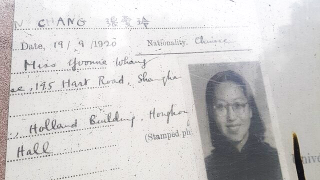 N CHANG 張愛玲
Date, 19/9/1920 Nationality. Chinese
Miss Yvonne Whang
195 Hart Road, Shangha
Holland Building, Hongkon
Hall
(Stamped ph